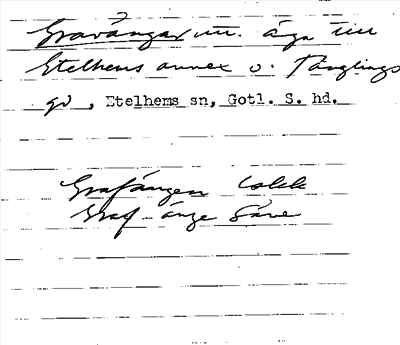 Gravängar m. äga till
Etelhems annex o. Tänglings
gd, Etelhems sn, Gotl. S. hd.
Grafängen
Graf-änge Säve